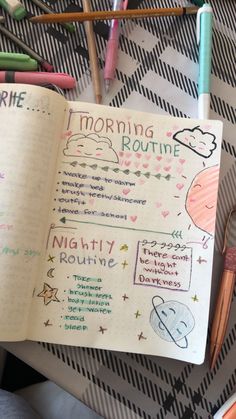 MORNING
ROUTINE
• wake up to alarm
• make bed
• brush teeth/skincare
• outfit
• leave for school
NIGHTLY
ROUTINE
• Take a
shower
• brush teeth
• body lotion
• get water
• read
• sleep
There can't
be light
without
Darkness